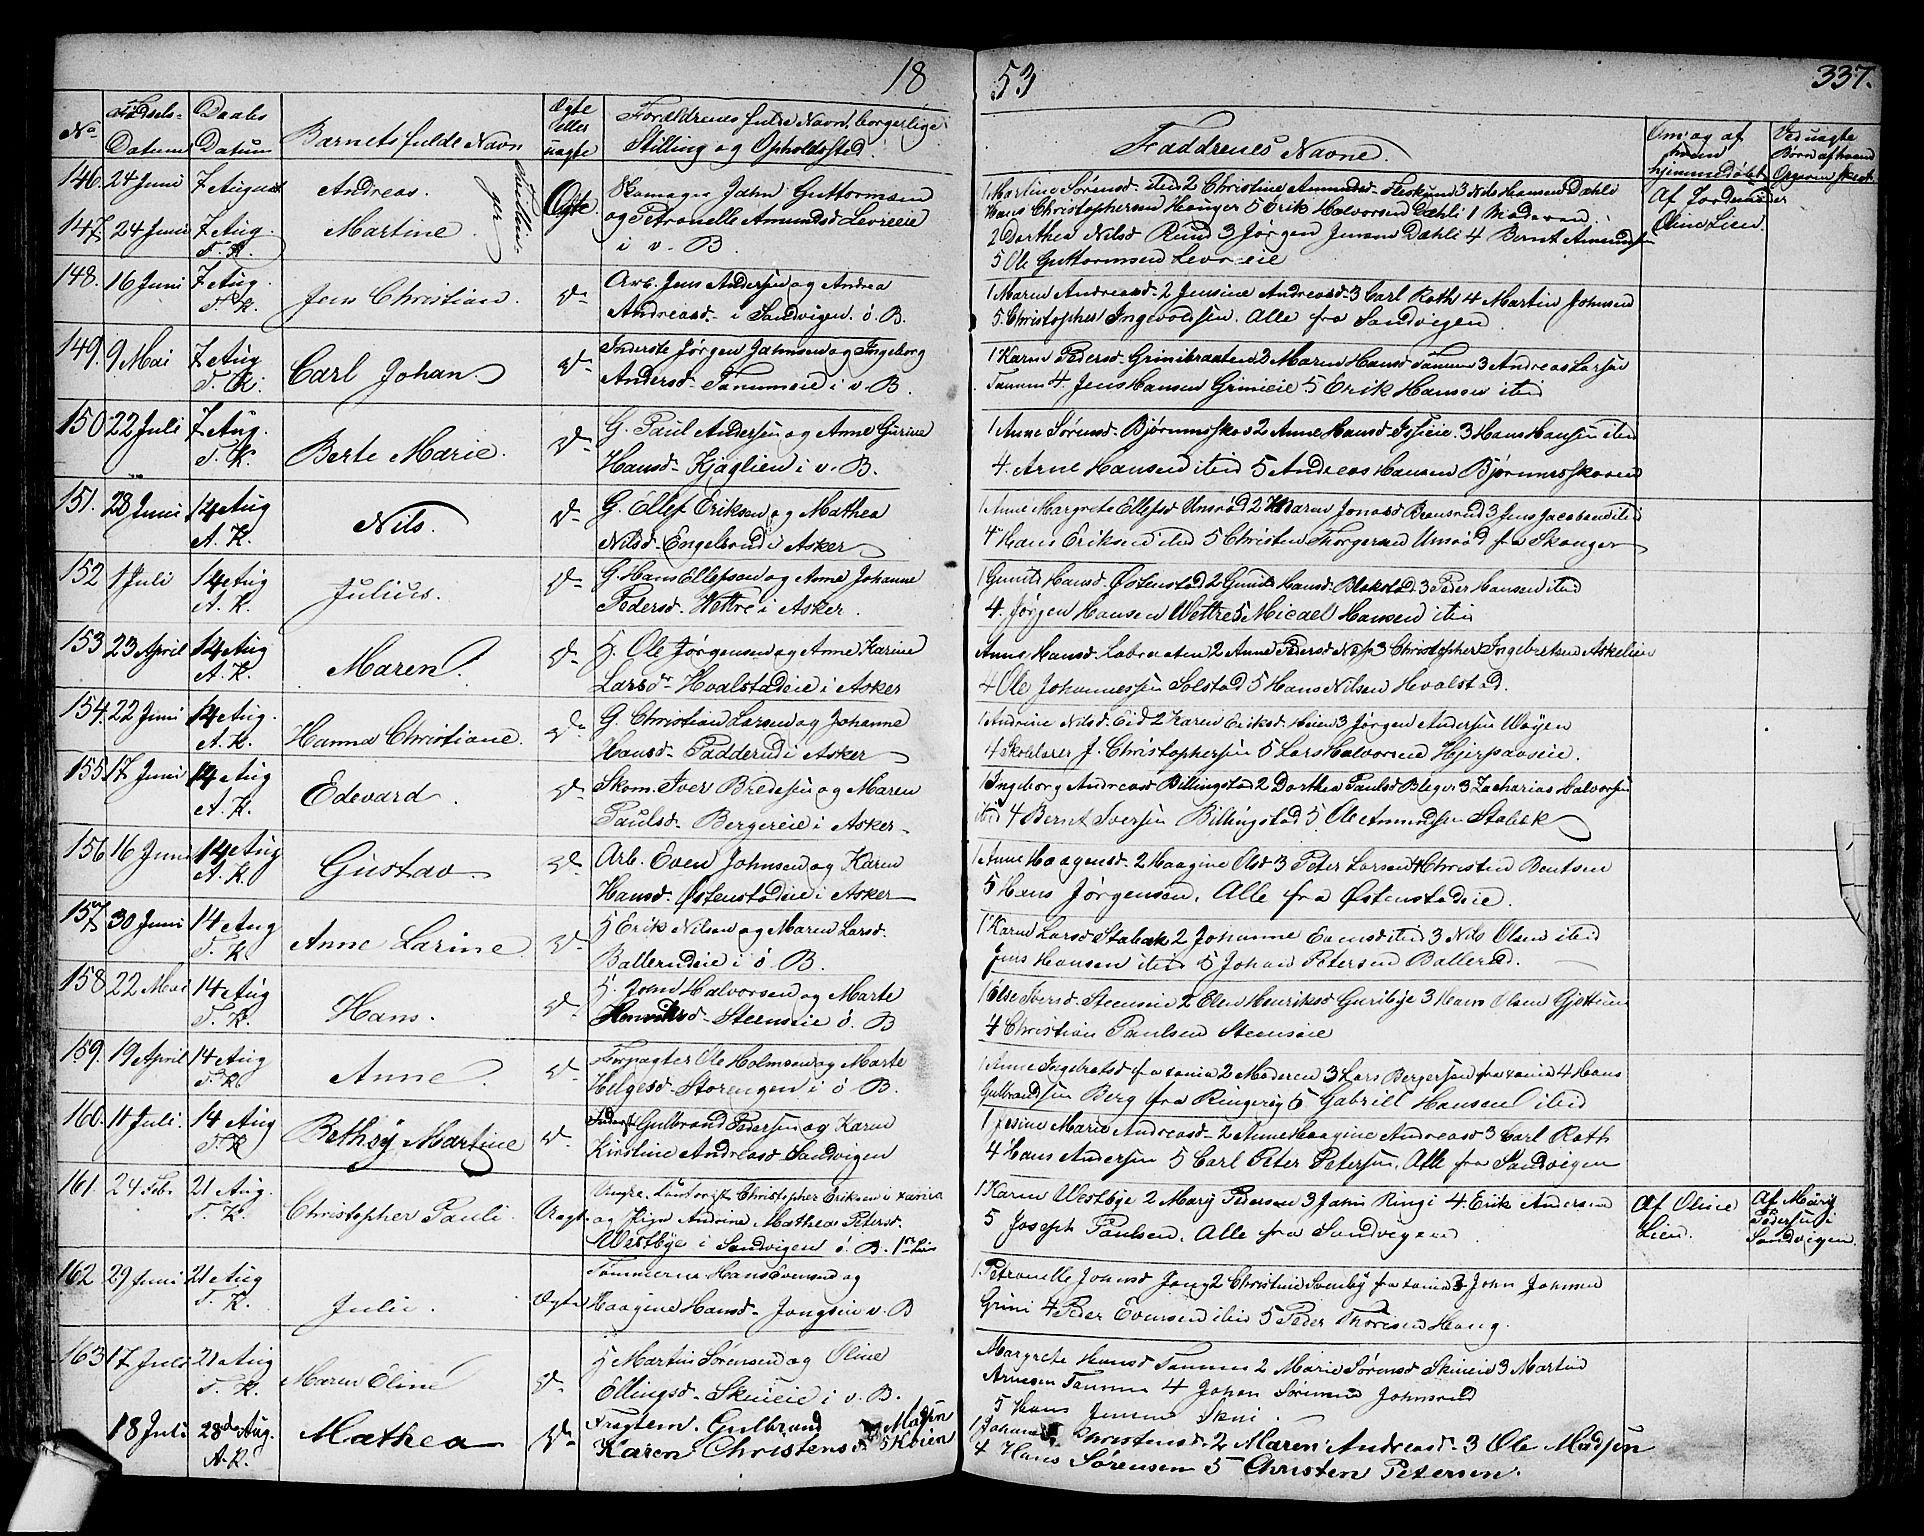 18
53
337.
No
Fødsels-
Datum
Daabs
Datum
Barnets fulde Navn
Ægte
eller
uægte
Forældrenes fulde Navn, borgerlige
Stilling og Opholdsted.
Faddrenes Navne.
Om og af
hvem
hjemmedøbt
Ved uægte
Børn af hvem
Opgiven skeet
146. 24 Juni 7 August Andreas. Ægte.
Jahn Guttormsen
og Petronelle Amundsd Levreeie
i v. B.
1 Martine Sørensd. ibid 2 Christine Amundsd. Fleskum 3 Nils Hansen Dæhli
Hans Christophersen Hauger 5 Erik Halvorsen Dæhli 1 Moderen
Af Jordemoder
Oline Lien.
147. 24 Juni 7 Aug. Martine.
T. K.
2 Dorthea Nilsd Rud 3 Jørgen Jensen Dæhli 4 Bernt Amundsen
5 Ole Guttormsen Levreeie
148. 16 Juni 7 Aug. Jens Christian. Do
T. K.
Arb. Jens Andersen og Andrea
Andreasd. i Sandvigen. ø. B.
1 Maren Andreasd. 2 Jensine Andreasd. 3 Carl Roth 4 Martin Johnsen
5. Christopher Ingevoldsen. Alle fra Sandvigen.
149. 9 Mai 7 Aug Carl Johan Do
T. K.
Inderste Jørgen Jahnsen og Ingeborg
Andersd. Tanumeie i v. B.
1 Karen Pedersd. Grinibraaten 2 Maren Hansd Tanum 3 Andreas Larsen
Tanum 4. Jens Hansen Grinieie 5 Erik Hansen ibid
150 22 Juli 7 Aug. Berte Marie. Do
T. K.
G. Paul Andersen og Anne Gurine
Hansd. Kjaglien i v. B.
1 Anne Sørensd. Bjørumsskov 2 Anne Hansd. Isieie. 3 Hans Hansen ibid
4. Arne Hansen ibid 5 Andreas Hansen Bjørumsskoven
151. 28 Juni 14 Aug Nils. Do
A. K.
G. Ellef Eriksen og Mathea
Nilsd. Engelsrud i Asker
1 Anne Margrete Ellefsd 2 Karen Jonasd 3 Jens Jacobsen ibid
4 Hans Eriksen ibid 5 Christen Thorgersen fra Skouger
152 1 Juli 14 Aug Julius. Do
A. K.
G. Hans Ellefsen og Anne Johanne
Pedersd. Vettre i Asker.
1 Gunild Hansd. Østenstad 2 Gunild Hansd. Blakstad 3 Peder Hansen ibid
4. Jørgen Hansen Wettre 5 Micael Hansen ibid
153 23 April 14 Aug Maren. Do
A. K.
H. Ole Jørgensen og Anne Karine
Larsd. Hvalstadeie i Asker
Anne Hansd. Labraaten 2 Anne Pedersd Nes 3 Christopher Ingebretsen Askelien
4 Ole Johannessen Solstad 5 Hans Nilsen Hvalstad.
154. 22 Juni 14 Aug. Hanna Christiane. Do
A. K.
G. Christian Larsen og Johanne
Hansd. Padderud i Asker
1 Andrine Nilsd. Eid 2 Karen Eriksd. 3 Jørgen Andersen Wøyen
4 Skolelærer J. Christophersen 5 Lars Halvorsen
155. 17 Juni 14 Aug Edevard. Do
A. K.
Skom. Iver Bredesen og Maren
Paulsd. Bergereie i Asker.
1 Ingeborg Andreasd Billingstad 2 Dorthea Paulsd Bleger 3 Zacharias Halvorsen
ibid 4 Bernt Iversen Billingstad 5. Ole Amundsen Stabek
156 16 Juni 14 Aug Gustav. Do
A. K.
Arb. Even Johnsen og Karen
Hansd. Østenstadeie i Asker
1 Anne Haagensd. 2 Haagine Olsd 3 Peter Larsen 4 Christen Bentsen
5 Hans Jørgensen. Alle fra Østenstadeie.
157 30 Juni 14 Aug Anne Larine. Do
T. K.
H Erik Nilsen og Maren Larsd.
Ballerudeie i ø. B.
1 Karen Larsd Stabæk 2 Johanne Evensd ibid 3 Nils Olsen ibid
Jens Hansen ibid 5 Johan Petersen Ballerud.
158 22 Mai 14 Aug Hans. Do
T. K.
H. John Halvorsen og Marte
Henriksd. Steenseie ø. B
1 Else Iversd. Steenseie 2 Elen Henriksd Guribye 3 Hans Olsen Gjettum
4 Christian Paulsen Steenseie
159. 19 April 14 Aug Anne. Do
T. K.
Forpagter Ole Holmsen og Marte
Helgesd. Storengen i ø. B.
1 Anne fra xania 2 Moderen 3 Lars Bergersen fra xania 4 Hans
Gulbrandsen Berg fra Ringerig 5 Gabriel Hansen ibid
160. 11 Juli. 14 Aug Bethsy Martine Do
T. K
Inderst Gulbrand Pedersen og Karen
Kirstine Andreasd Sandvigen
1 Jesine Marie Andreasd. 2 Anne Haagine Andreasd 3 Carl Roth
4 Hans Andersen 5 Carl Peter Petersen. Alle fra Sandvigen
161. 24 Feb. 21 Aug. Christopher Pauli. Uægt.
T. K.
Christopher Eriksen i xania
og Pige Andrine Mathea Petersd.
Westbye i Sandvigen ø. B.
1 Karen Westbye 2 Mary Pedersen 3 Jahn Ringi 4. Erik Andersen
5 Joseph Paulsen. Alle fra Sandvigen
Af Oline
Lien.
Af Mary
Pedersen i
Sandvigen.
162 29 Juni 21 Aug Julie. Ægte
T. K.
Tømmerm Hans Evensen og
Haagine Hansd. Jongseie v. B
1. Petronelle Johnsd Jong 2 Christine fra xania 3 John Johnsen
Grini 4 Peder Evensen ibid 5 Peder Thoresen Haug.
163 17 Juli 21 Aug Maren Eline Do
T. K.
H Martin Sørensen og Oline
Ellingsd. Skuieie i v. B.
Margrete Hansd Tanum 2 Marie Sørensd Skuieie 3 Martin
Arnesen Tanum 4 Johan Sørensen Johnsrud
5 Hans Jensen Skui.
18 Juli 28de Aug. Mathea Do
A. K.
Gulbrand Madsen
Karen Christensd
1 Christensd. 2 Maren Andreasd. 3 Ole Madsen
4 Hans Sørensen 5 Christen Petersen.